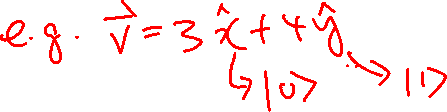 e.g. v⃗ = 3x̂ + 4ŷ
↳|0> ↘|1>